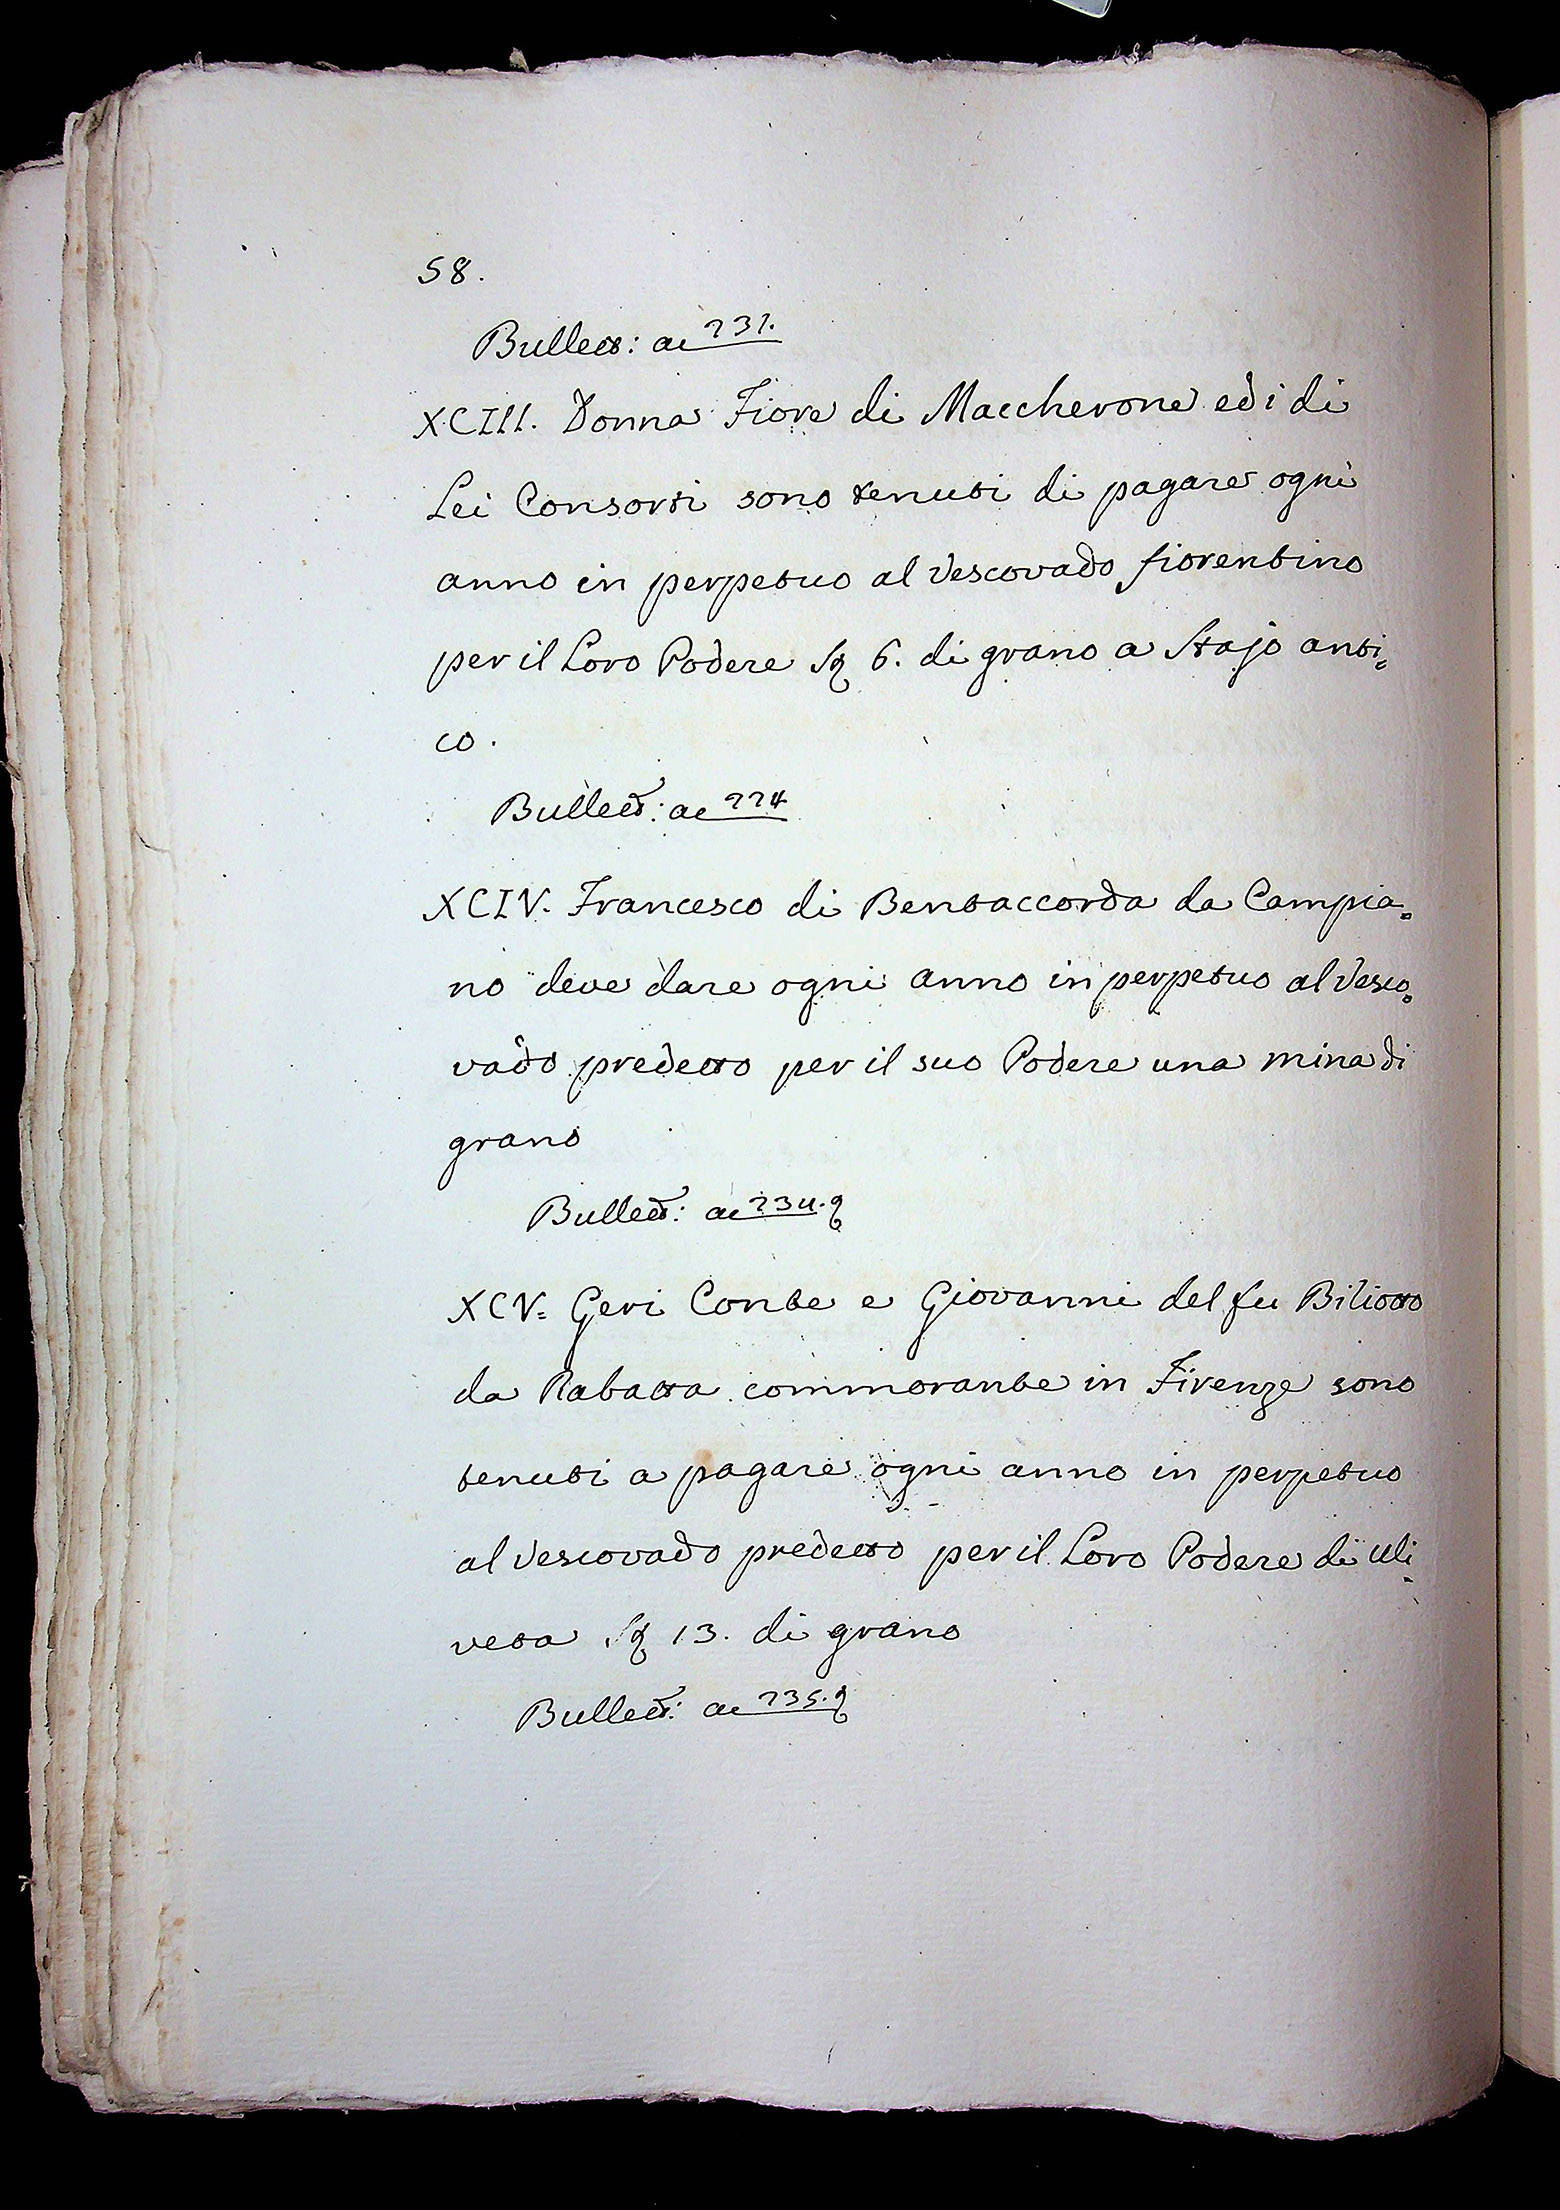 58.
Bullett: ac 231.
XCIII. Donna Fiore di Maccherone ed i di
Lei Consorti sono tenuti di pagare ogni
anno in perpetuo al Vescovado fiorentino
per il Loro Podere Sa 6. di grano a Stajo anti=
co.
Bullett: ac 224
XCIV. Francesco di Bentaccorda da Campia=
no deve dare ogni anno in perpetuo al Vesco=
vado predetto per il suo Podere una mina di
grano
Bullett: ac 234.
XCV. Geri Conte e Giovanni del fu Biliotto
da Rabatta commorante in Firenze sono
tenuti a pagare ogni anno in perpetuo
al Vescovado predetto per il Loro Podere di Uli=
veta Sa 13. di grano
Bullett: ac 235.